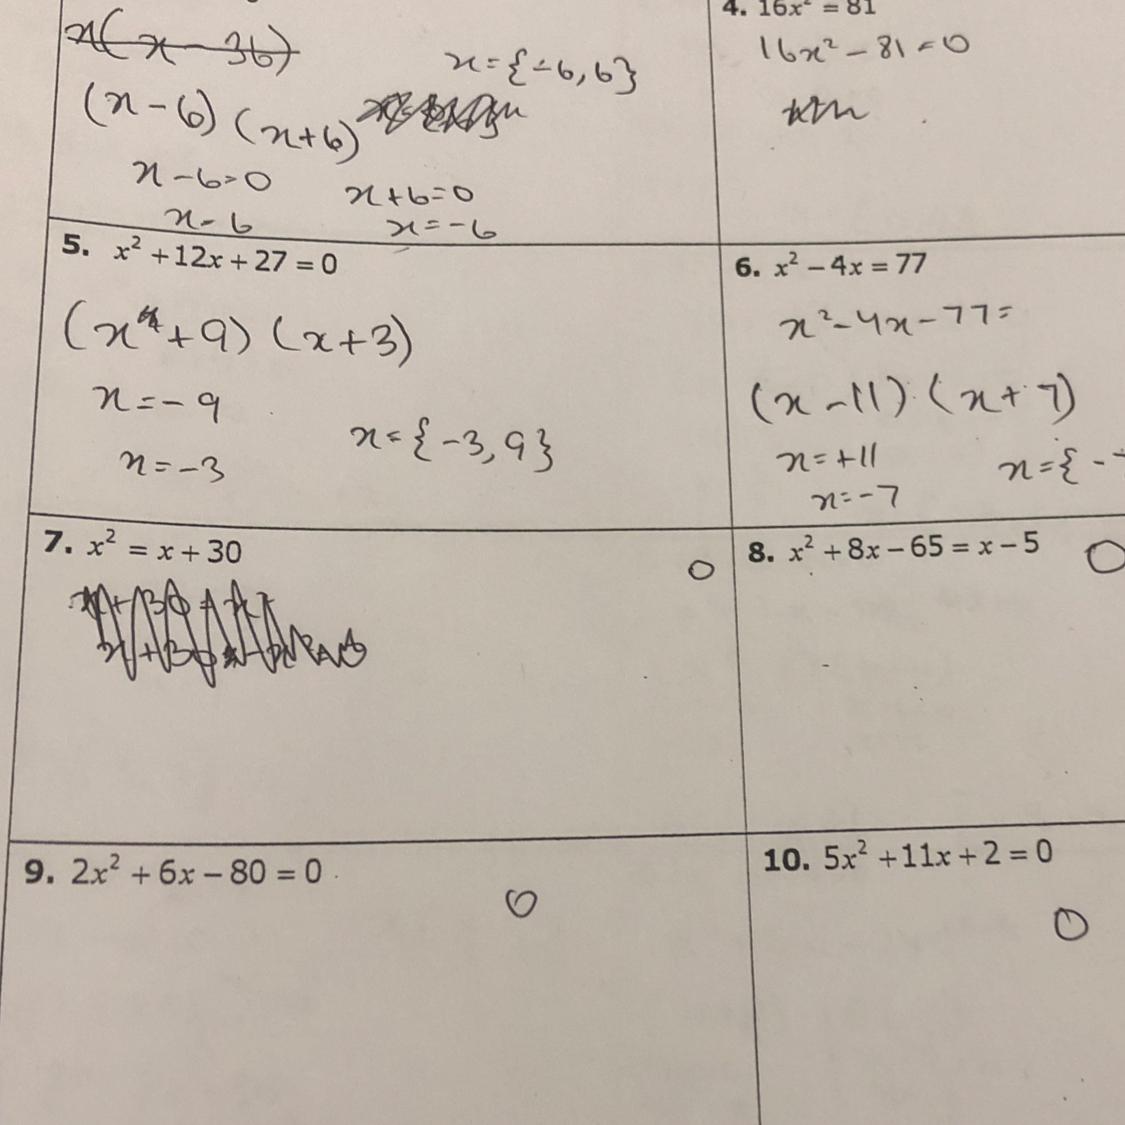 x(x - 36)
x = {-6, 6}
(x - 6) (x + 6)
x - 6 = 0
x + 6 = 0
x = 6
x = -6
4. 16x² = 81
16x² - 81 = 0
5. x² + 12x + 27 = 0
(x + 9) (x + 3)
x = -9
x = -3
x = {-3, 9}
6. x² - 4x = 77
x² - 4x - 77 =
(x - 11) (x + 7)
x = +11
x = -7
x = { -
7. x² = x + 30
8. x² + 8x - 65 = x - 5
9. 2x² + 6x - 80 = 0
10. 5x² + 11x + 2 = 0